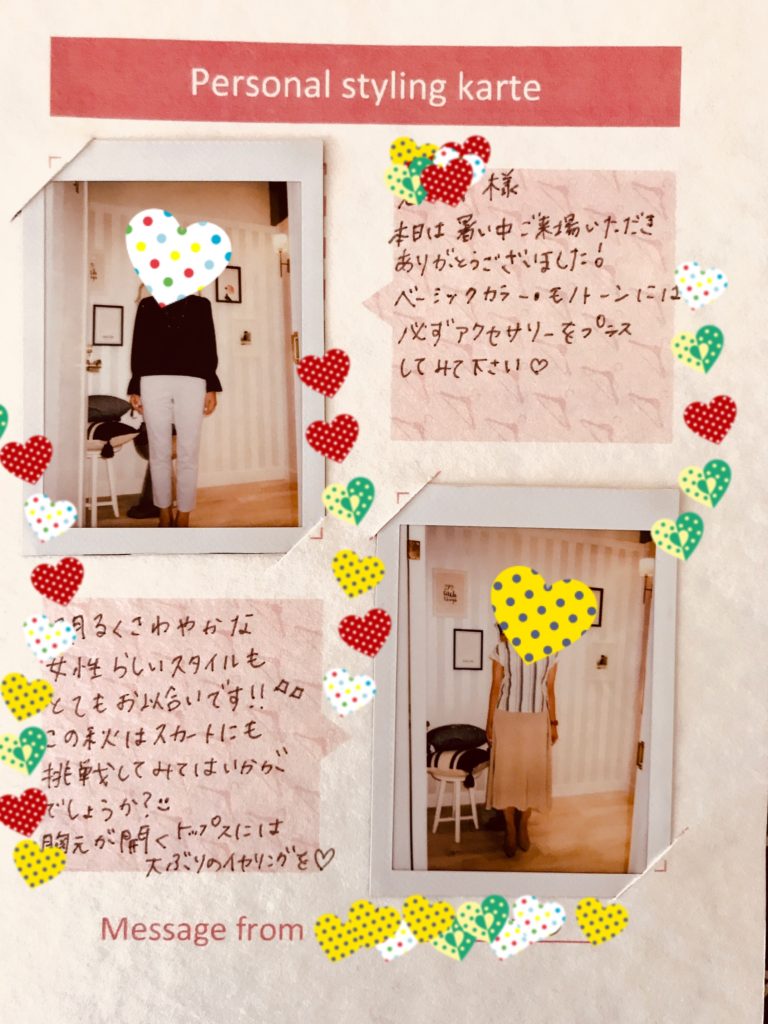 Personal styling karte
様
本日は暑い中ご来場いただき
ありがとうございました!
ベーミックカラー・モノトーンには
必ずアクセサリーをプラス
してみて下さい♡
明るくさわやかな
女性らしいスタイルも
とてもお似合いです!!
この秋はスカートにも
挑戦してみてはいかが
でしょうか?
胸元が開くトップスには
大ぶりのイヤリングを♡
Message from